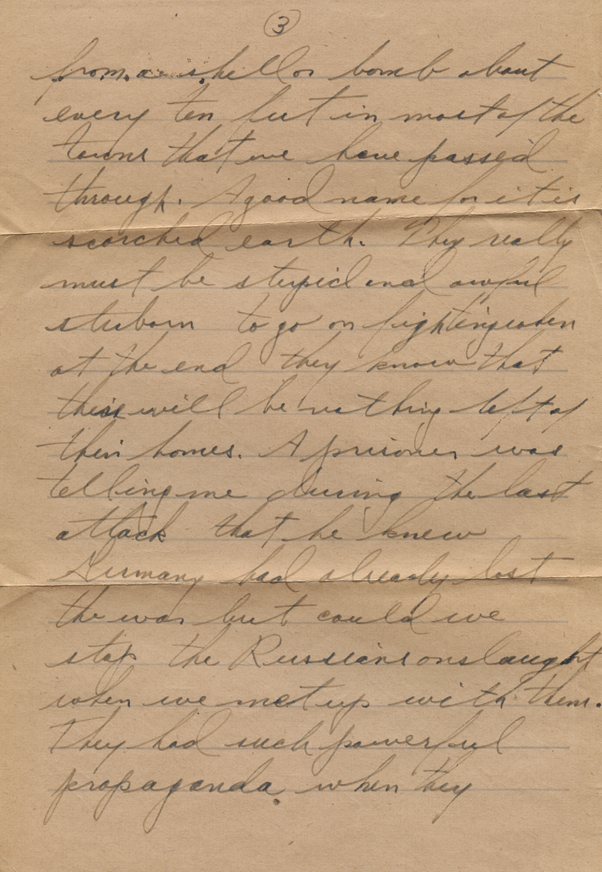 3
from a shell or bomb about
every ten feet in most of the
towns that we have passed
through. A good name for it is
scorched earth. They really
must be stupid and awful
stuborn to go on fighting when
at the end they know that
their will be nothing left of
their homes. A prisoner was
telling me during the last
attack that he knew
Germany had already lost
the war but could we
stop the Russians onslaught
when we met up with them.
They had such powerful
propaganda when they